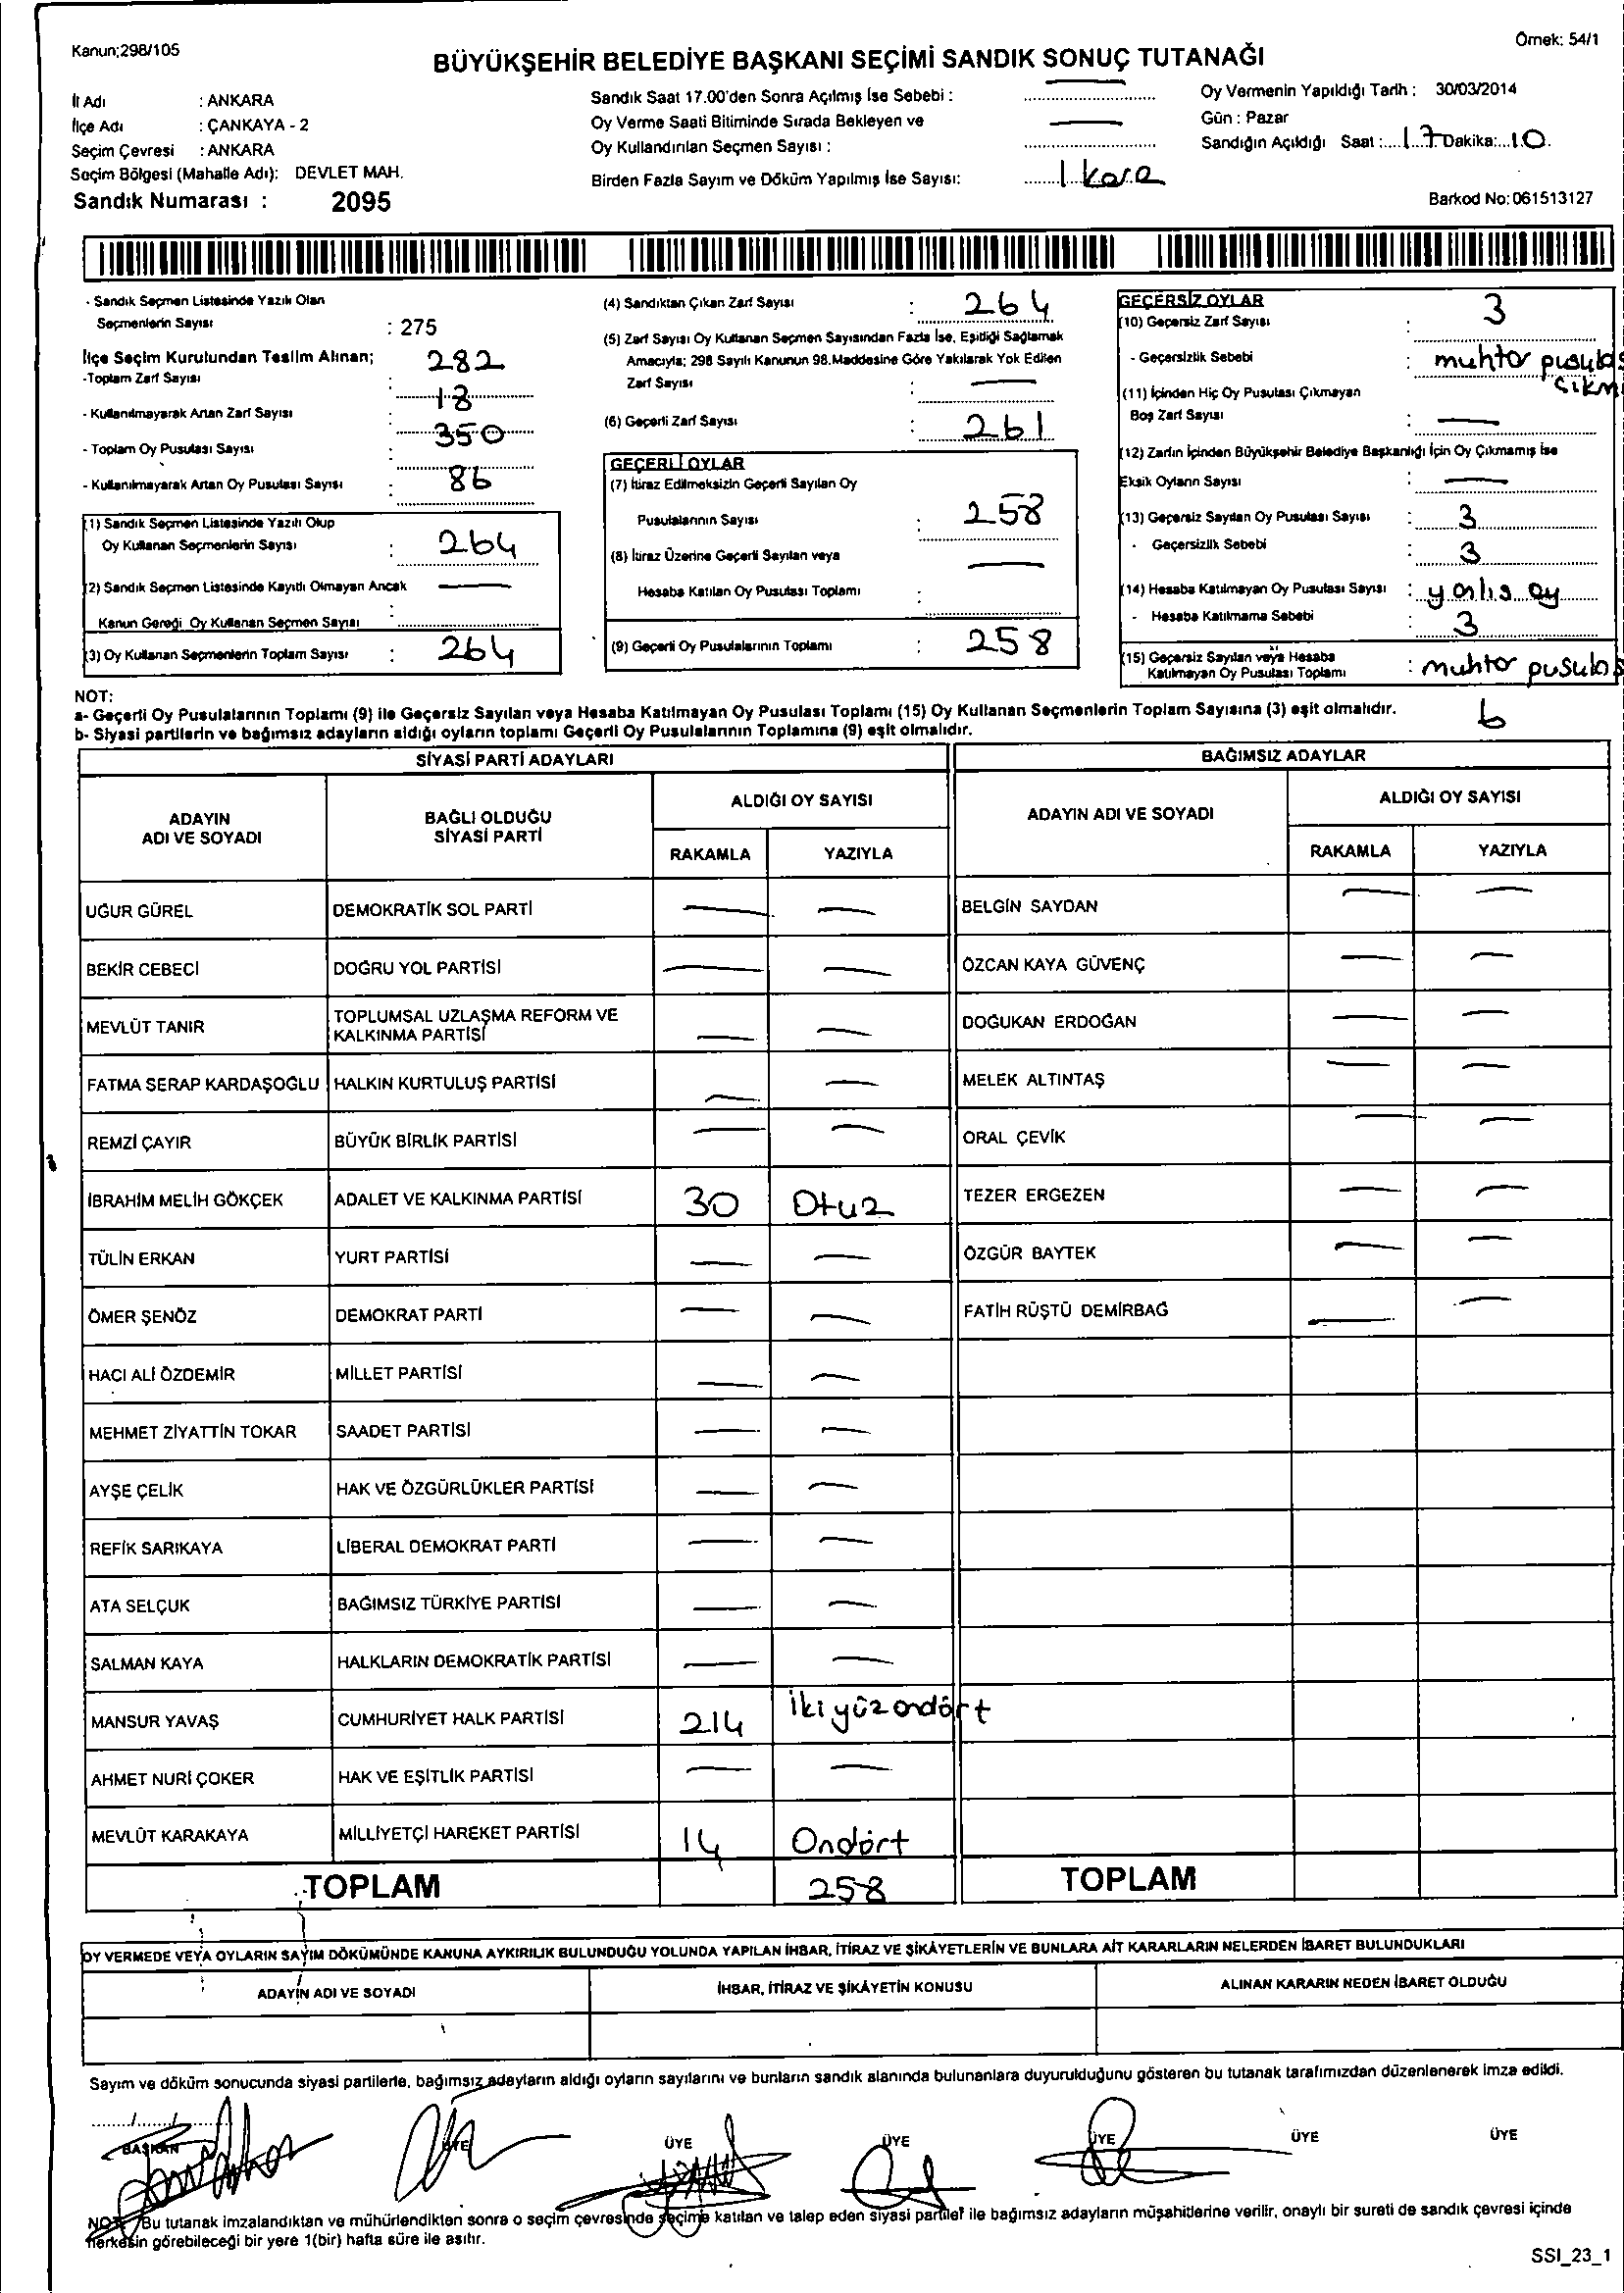 Kanun;298/105
Örnek: 54/1
BÜYÜKŞEHİR BELEDİYE BAŞKANI SEÇİMİ SANDIK SONUÇ TUTANAĞI
İl Adı : ANKARA
İlçe Adı : ÇANKAYA - 2
Seçim Çevresi : ANKARA
Seçim Bölgesi (Mahalle Adı): DEVLET MAH.
Sandık Numarası : 2095
Sandık Saat 17.00'den Sonra Açılmış İse Sebebi : —
Oy Verme Saati Bitiminde Sırada Bekleyen ve
Oy Kullandırılan Seçmen Sayısı : —
Birden Fazla Sayım ve Döküm Yapılmış İse Sayısı: 1 kere
Oy Vermenin Yapıldığı Tarih : 30/03/2014
Gün : Pazar
Sandığın Açıldığı Saat : 17 Dakika: 10
Barkod No: 061513127
- Sandık Seçmen Listesinde Yazılı Olan
Seçmenlerin Sayısı : 275
İlçe Seçim Kurulundan Teslim Alınan;
-Toplam Zarf Sayısı : 282
- Kullanılmayarak Artan Zarf Sayısı : 18
- Toplam Oy Pusulası Sayısı : 350
- Kullanılmayarak Artan Oy Pusulası Sayısı : 86
(1) Sandık Seçmen Listesinde Yazılı Olup
Oy Kullanan Seçmenlerin Sayısı : 264
(2) Sandık Seçmen Listesinde Kayıtlı Olmayan Ancak
Kanun Gereği Oy Kullanan Seçmen Sayısı : —
(3) Oy Kullanan Seçmenlerin Toplam Sayısı : 264
(4) Sandıktan Çıkan Zarf Sayısı : 264
(5) Zarf Sayısı Oy Kullanan Seçmen Sayısından Fazla İse, Eşitliği Sağlamak
Amacıyla; 298 Sayılı Kanunun 98.Maddesine Göre Yakılarak Yok Edilen
Zarf Sayısı : —
(6) Geçerli Zarf Sayısı : 261
GEÇERLİ OYLAR
(7) İtiraz Edilmeksizin Geçerli Sayılan Oy
Pusulalarının Sayısı : 258
(8) İtiraz Üzerine Geçerli Sayılan veya
Hesaba Katılan Oy Pusulası Toplamı : —
(9) Geçerli Oy Pusulalarının Toplamı : 258
GEÇERSİZ OYLAR
(10) Geçersiz Zarf Sayısı : 3
- Geçersizlik Sebebi : muhtar pusulas
çıkm
(11) İçinden Hiç Oy Pusulası Çıkmayan
Boş Zarf Sayısı : —
(12) Zarfın İçinden Büyükşehir Belediye Başkanlığı İçin Oy Çıkmamış İse
Eksik Oyların Sayısı : —
(13) Geçersiz Sayılan Oy Pusulası Sayısı : 3
- Geçersizlik Sebebi : 3
(14) Hesaba Katılmayan Oy Pusulası Sayısı : yanlıs oy
- Hesaba Katılmama Sebebi : 3
(15) Geçersiz Sayılan veya Hesaba
Katılmayan Oy Pusulası Toplamı : muhtar pusulas
6
NOT:
a- Geçerli Oy Pusulalarının Toplamı (9) ile Geçersiz Sayılan veya Hesaba Katılmayan Oy Pusulası Toplamı (15) Oy Kullanan Seçmenlerin Toplam Sayısına (3) eşit olmalıdır.
b- Siyasi partilerin ve bağımsız adayların aldığı oyların toplamı Geçerli Oy Pusulalarının Toplamına (9) eşit olmalıdır.
SİYASİ PARTİ ADAYLARI
ADAYIN ADI VE SOYADI BAĞLI OLDUĞU SİYASİ PARTİ ALDIĞI OY SAYISI
RAKAMLA YAZIYLA
UĞUR GÜREL DEMOKRATİK SOL PARTİ — —
BEKİR CEBECİ DOĞRU YOL PARTİSİ — —
MEVLÜT TANIR TOPLUMSAL UZLAŞMA REFORM VE KALKINMA PARTİSİ — —
FATMA SERAP KARDAŞOĞLU HALKIN KURTULUŞ PARTİSİ — —
REMZİ ÇAYIR BÜYÜK BİRLİK PARTİSİ — —
İBRAHİM MELİH GÖKÇEK ADALET VE KALKINMA PARTİSİ 30 Otuz
TÜLİN ERKAN YURT PARTİSİ — —
ÖMER ŞENÖZ DEMOKRAT PARTİ — —
HACI ALİ ÖZDEMİR MİLLET PARTİSİ — —
MEHMET ZİYATTİN TOKAR SAADET PARTİSİ — —
AYŞE ÇELİK HAK VE ÖZGÜRLÜKLER PARTİSİ — —
REFİK SARIKAYA LİBERAL DEMOKRAT PARTİ — —
ATA SELÇUK BAĞIMSIZ TÜRKİYE PARTİSİ — —
SALMAN KAYA HALKLARIN DEMOKRATİK PARTİSİ — —
MANSUR YAVAŞ CUMHURİYET HALK PARTİSİ 214 İkiyüzondört
AHMET NURİ ÇOKER HAK VE EŞİTLİK PARTİSİ — —
MEVLÜT KARAKAYA MİLLİYETÇİ HAREKET PARTİSİ 14 Ondört
TOPLAM 258
BAĞIMSIZ ADAYLAR
ADAYIN ADI VE SOYADI ALDIĞI OY SAYISI
RAKAMLA YAZIYLA
BELGİN SAYDAN — —
ÖZCAN KAYA GÜVENÇ — —
DOĞUKAN ERDOĞAN — —
MELEK ALTINTAŞ — —
ORAL ÇEVİK — —
TEZER ERGEZEN — —
ÖZGÜR BAYTEK — —
FATİH RÜŞTÜ DEMİRBAĞ — —
TOPLAM
OY VERMEDE VEYA OYLARIN SAYIM DÖKÜMÜNDE KANUNA AYKIRILIK BULUNDUĞU YOLUNDA YAPILAN İHBAR, İTİRAZ VE ŞİKÂYETLERİN VE BUNLARA AİT KARARLARIN NELERDEN İBARET BULUNDUKLARI
ADAYIN ADI VE SOYADI İHBAR, İTİRAZ VE ŞİKÂYETİN KONUSU ALINAN KARARIN NEDEN İBARET OLDUĞU
Sayım ve döküm sonucunda siyasi partilerle, bağımsız adayların aldığı oyların sayılarını ve bunların sandık alanında bulunanlara duyurulduğunu gösteren bu tutanak tarafımızdan düzenlenerek imza edildi.
....../....../......
BAŞKAN ÜYE ÜYE ÜYE ÜYE ÜYE ÜYE
NOT: Bu tutanak imzalandıktan ve mühürlendikten sonra o seçim çevresinde seçime katılan ve talep eden siyasi partiler ile bağımsız adayların müşahitlerine verilir, onaylı bir sureti de sandık çevresi içinde
herkesin görebileceği bir yere 1(bir) hafta süre ile asılır.
SSI_23_1